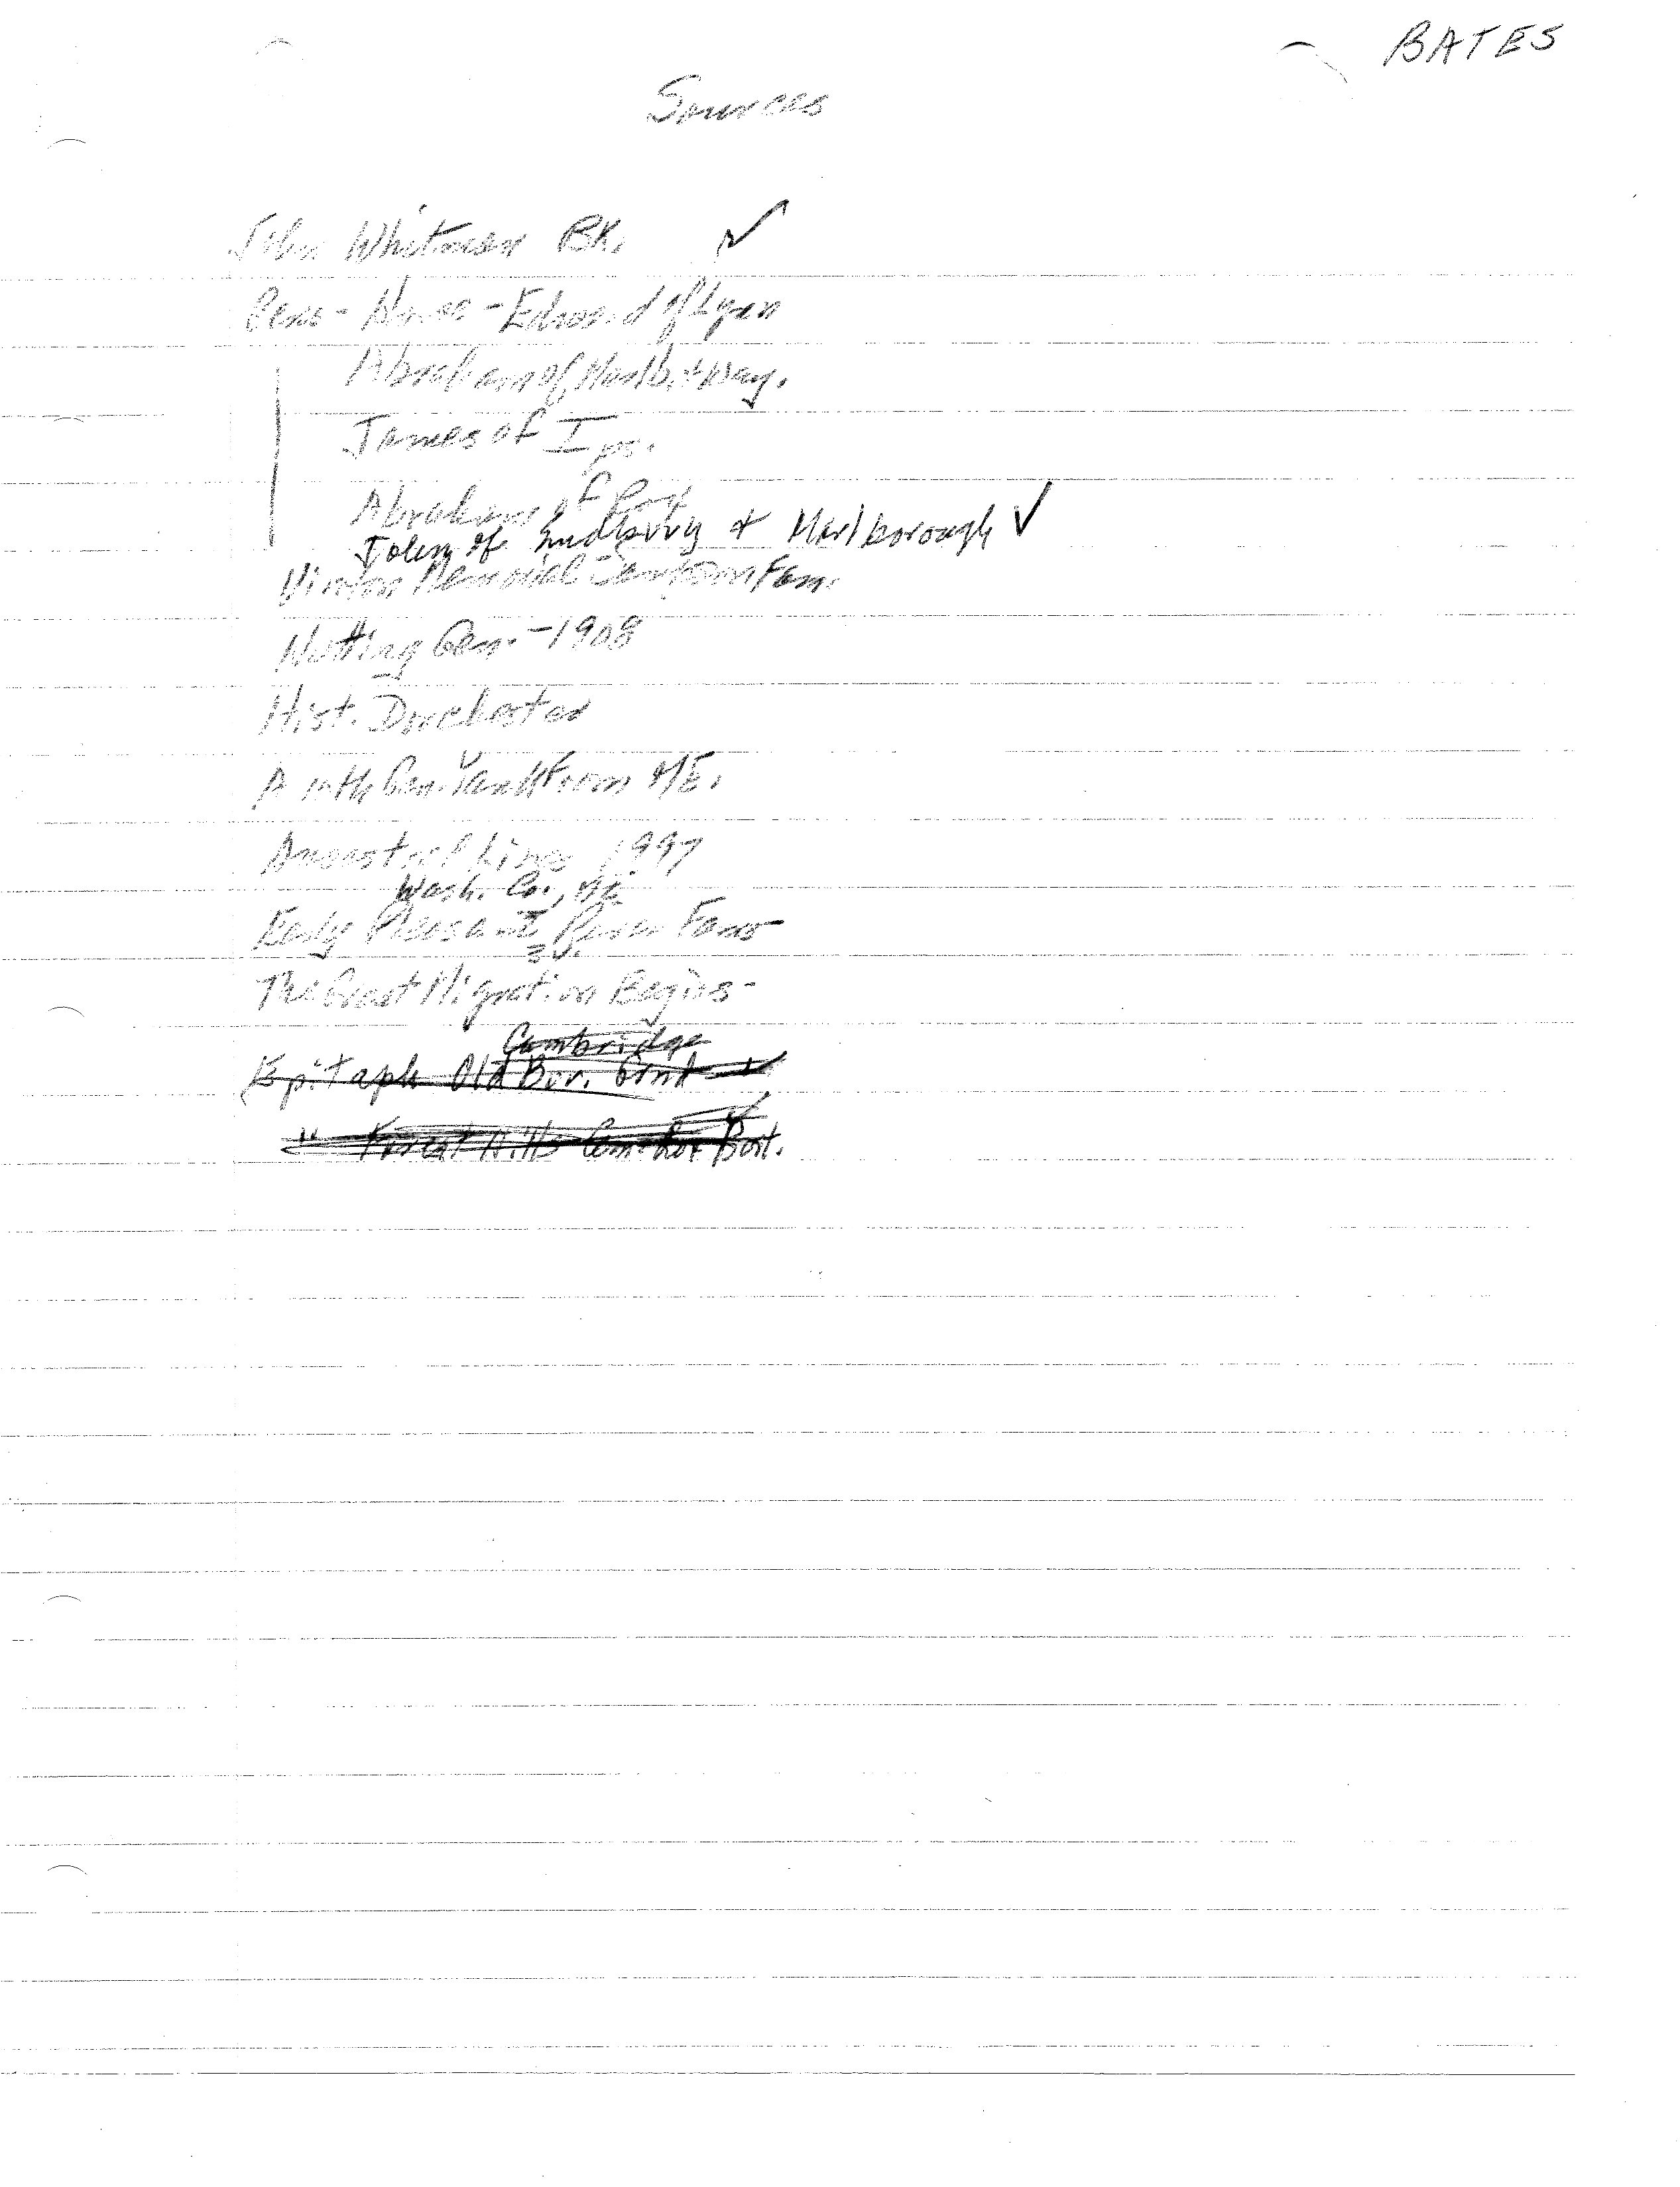 BATES
Sources
John Whitman BK. ✓
Gens - Howe - Edward of Lynn
Abraham of Marlb. & Way.
James of Ips.
Abraham of
John of Sudbury & Marlborough ✓
Vinton Memorial Sampson Fam.
Nutting Gen. - 1908
Hist. Dorchester
A 10th Gen. Yank From ME.
Ancestral Lines 1997
Wash. Co., ME
Early Pleasant River Fams
The Great Migration Begins -
Cambridge
Epitaph Old Bur. Grnd
" Forest Hills Bost.